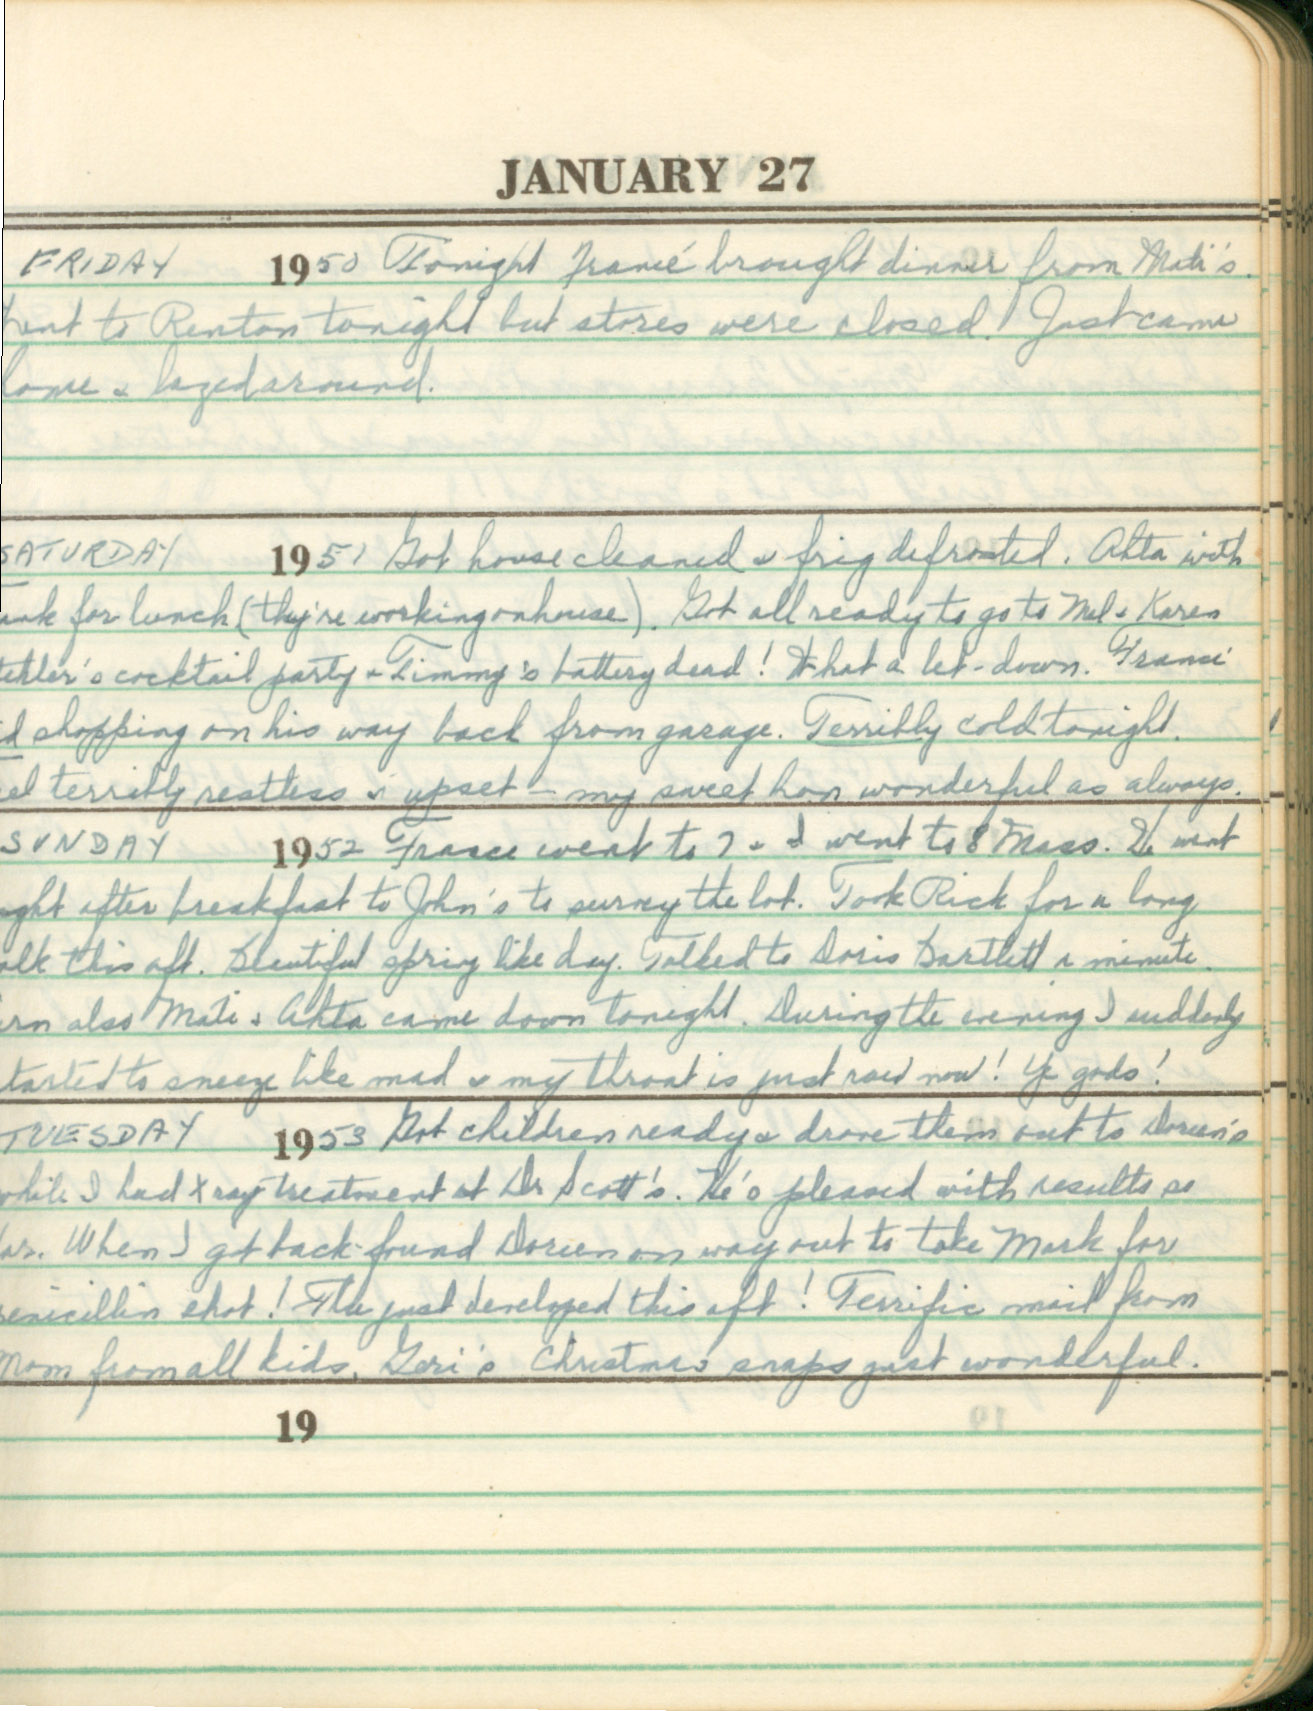 JANUARY 27
FRIDAY 1950 Tonight Francé brought dinner from Mati's.
Went to Renton tonight but stores were closed! Just came
home & lazed around.
SATURDAY 1951 Got house cleaned & frig defrosted. Ahta with
for lunch (they're working on house). Got all ready to go to Mel & Karen
's cocktail party & Timmy's battery dead! What a let-down. Francé
shopping on his way back from garage. Terribly cold tonight.
terribly restless & upset – my sweet hon wonderful as always.
SUNDAY 1952 France went to 7 & I went to 8 Mass. He went
after breakfast to John's to survey the lot. Took Rick for a long
this aft. Beautiful spring like day. Talked to Doris Bartlett a minute.
also Mati & Ahta came down tonight. During the evening I suddenly
started to sneeze like mad & my throat is just raw now! Ye gods!
TUESDAY 1953 Got children ready & drove them out to Doreen's
while I had X ray treatment at Dr Scott's. He's pleased with results so
far. When I got back found Doreen on way out to take Mark for
penicillin shot! Flu just developed this aft! Terrific mail from
Mom from all kids. Geri's Christmas snaps just wonderful.
19